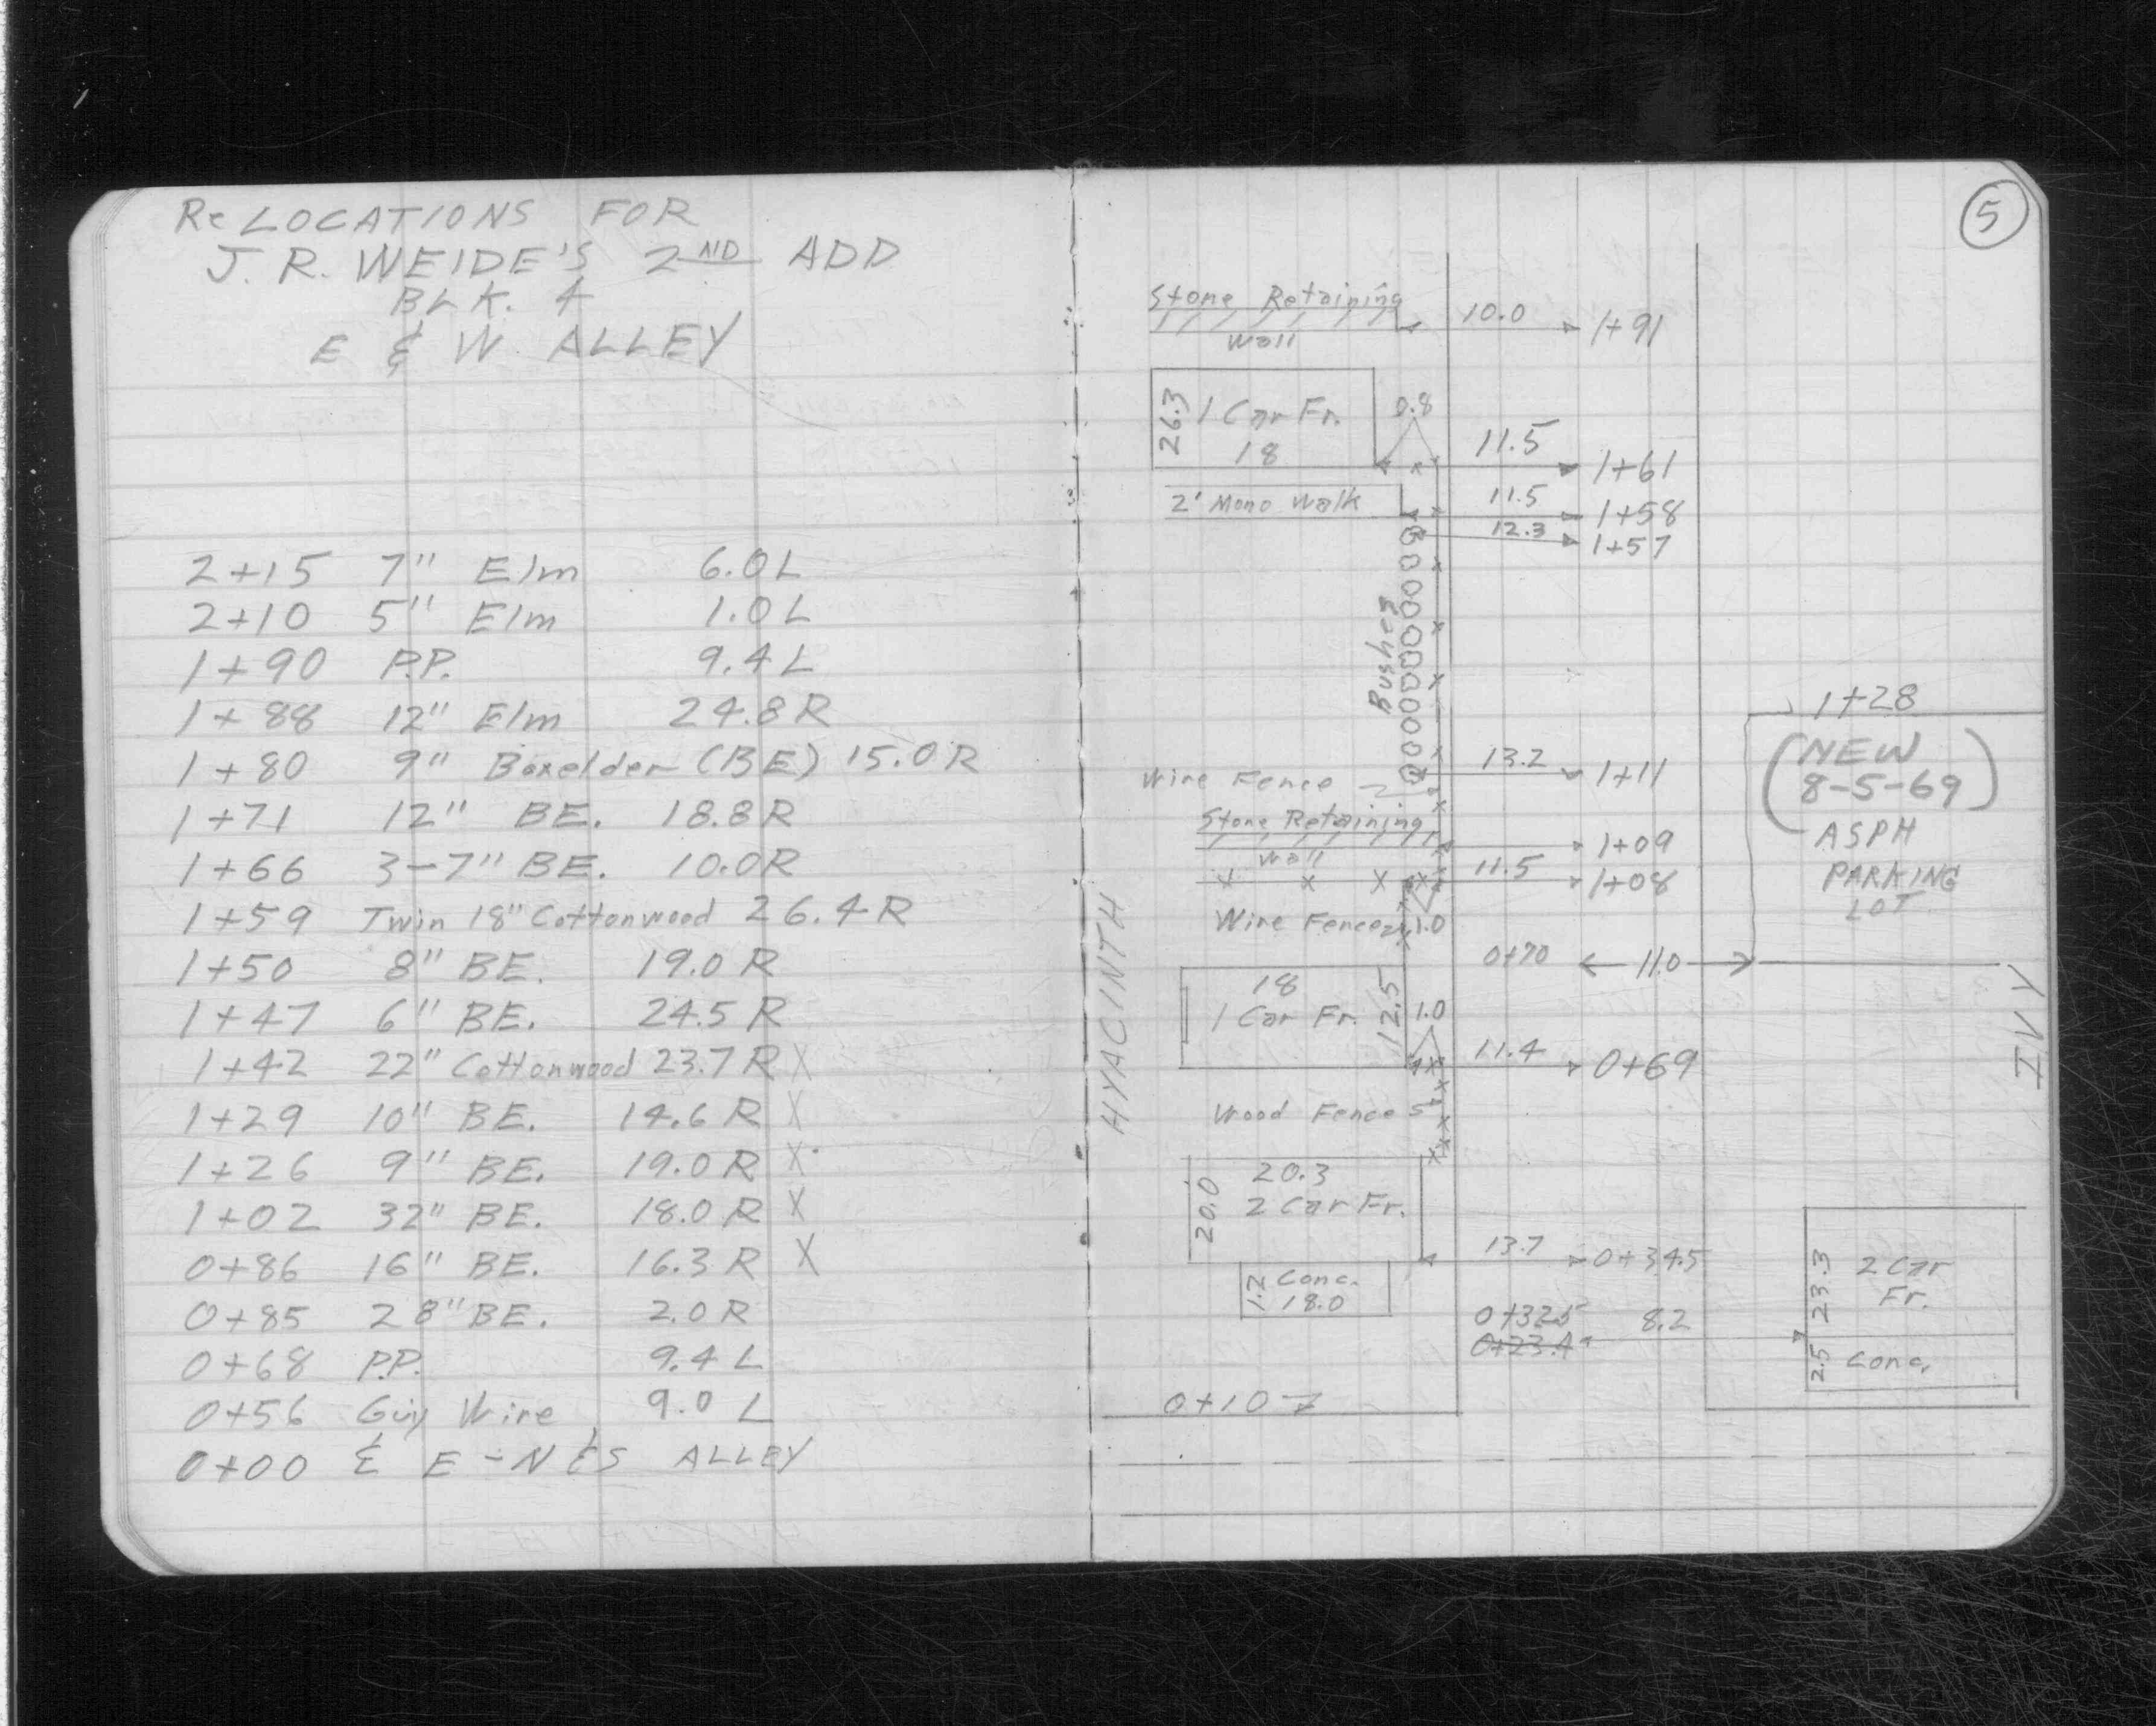 Re LOCATIONS FOR
J. R. WEIDE'S 2ND ADD
BLK. 4
E & W ALLEY
2+15 7" Elm 6.0 L
2+10 5" Elm 1.0 L
1+90 P.P. 9.4 L
1+88 12" Elm 24.8 R
1+80 9" Boxelder (BE) 15.0 R
1+71 12" BE. 18.8 R
1+66 3-7" BE. 10.0 R
1+59 Twin 18" Cottonwood 26.4 R
1+50 8" BE. 19.0 R
1+47 6" BE. 24.5 R
1+42 22" Cottonwood 23.7 R X
1+29 10" BE. 14.6 R X
1+26 9" BE. 19.0 R X
1+02 32" BE. 18.0 R X
0+86 16" BE. 16.3 R X
0+85 28" BE. 2.0 R
0+68 P.P. 9.4 L
0+56 Guy Wire 9.0 L
0+00 & E-N & S ALLEY
5
Stone Retaining
Wall
10.0 1+91
26.3 1 Car Fr. 0.8
18
11.5 1+61
2' Mono Walk
11.5 1+58
12.3 1+57
Bushes
1+28
(NEW
8-5-69)
ASPH
PARKING
LOT
Wire Fence
13.2 1+11
Stone Retaining
Wall
1+09
11.5 1+08
Wire Fence
1.0
HYACINTH
0+70 11.0
18
1 Car Fr. 12.5 1.0
IVY
11.4 0+69
Wood Fence
20.0 20.3
2 Car Fr.
13.7 0+34.5
1.2 Conc.
18.0
0+32.5 8.2
0+23.4
23.3 2 Car
Fr.
2.5 Conc.
0+10